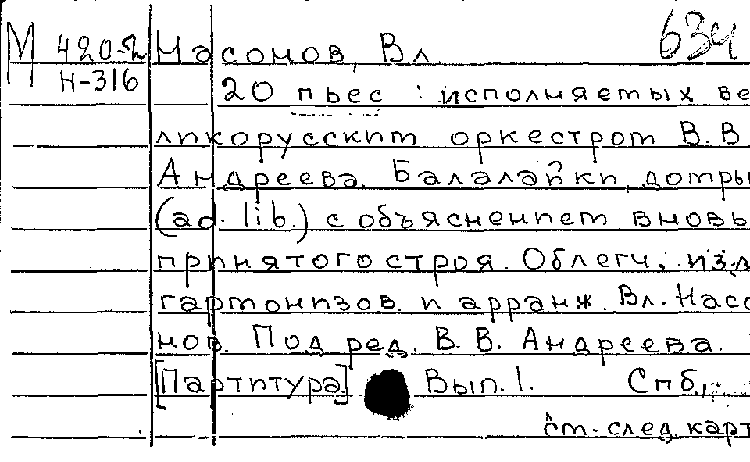 М 420-2 Насонов, Вл 634
Н-316 20 пьес : исполняемых ве
ликорусским оркестром В.В
Андреева. Балалайки, домры
(ad. lib.) с объяснением вновь
принятого строя. Облегч. изд
гармонизов. и арранж. Вл. Насо
нов. Под ред. В.В. Андреева.
[Партитура] Вып. 1. Спб.,
см. след. карт